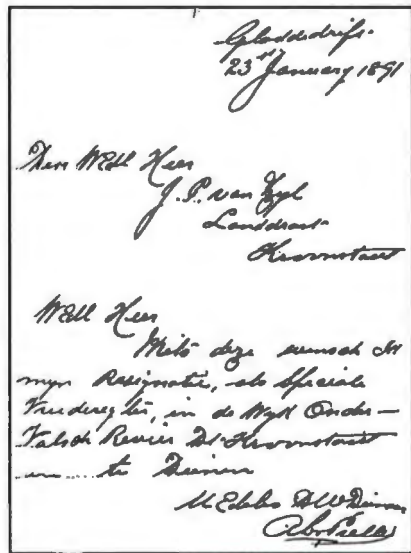 Gladdedrift
23rd January 1891
Den WEdl Heer
J. P. van Zyl
Landdrost
Kroonstad
WEdl Heer
Mits deze wensch Ik
myn Resignatie, als Speciale
Vrederegter, in de Wyk Onder-
Valsch Revier Dt Kroonstad
in .... te Dienen
U Edeles DW Dienaar